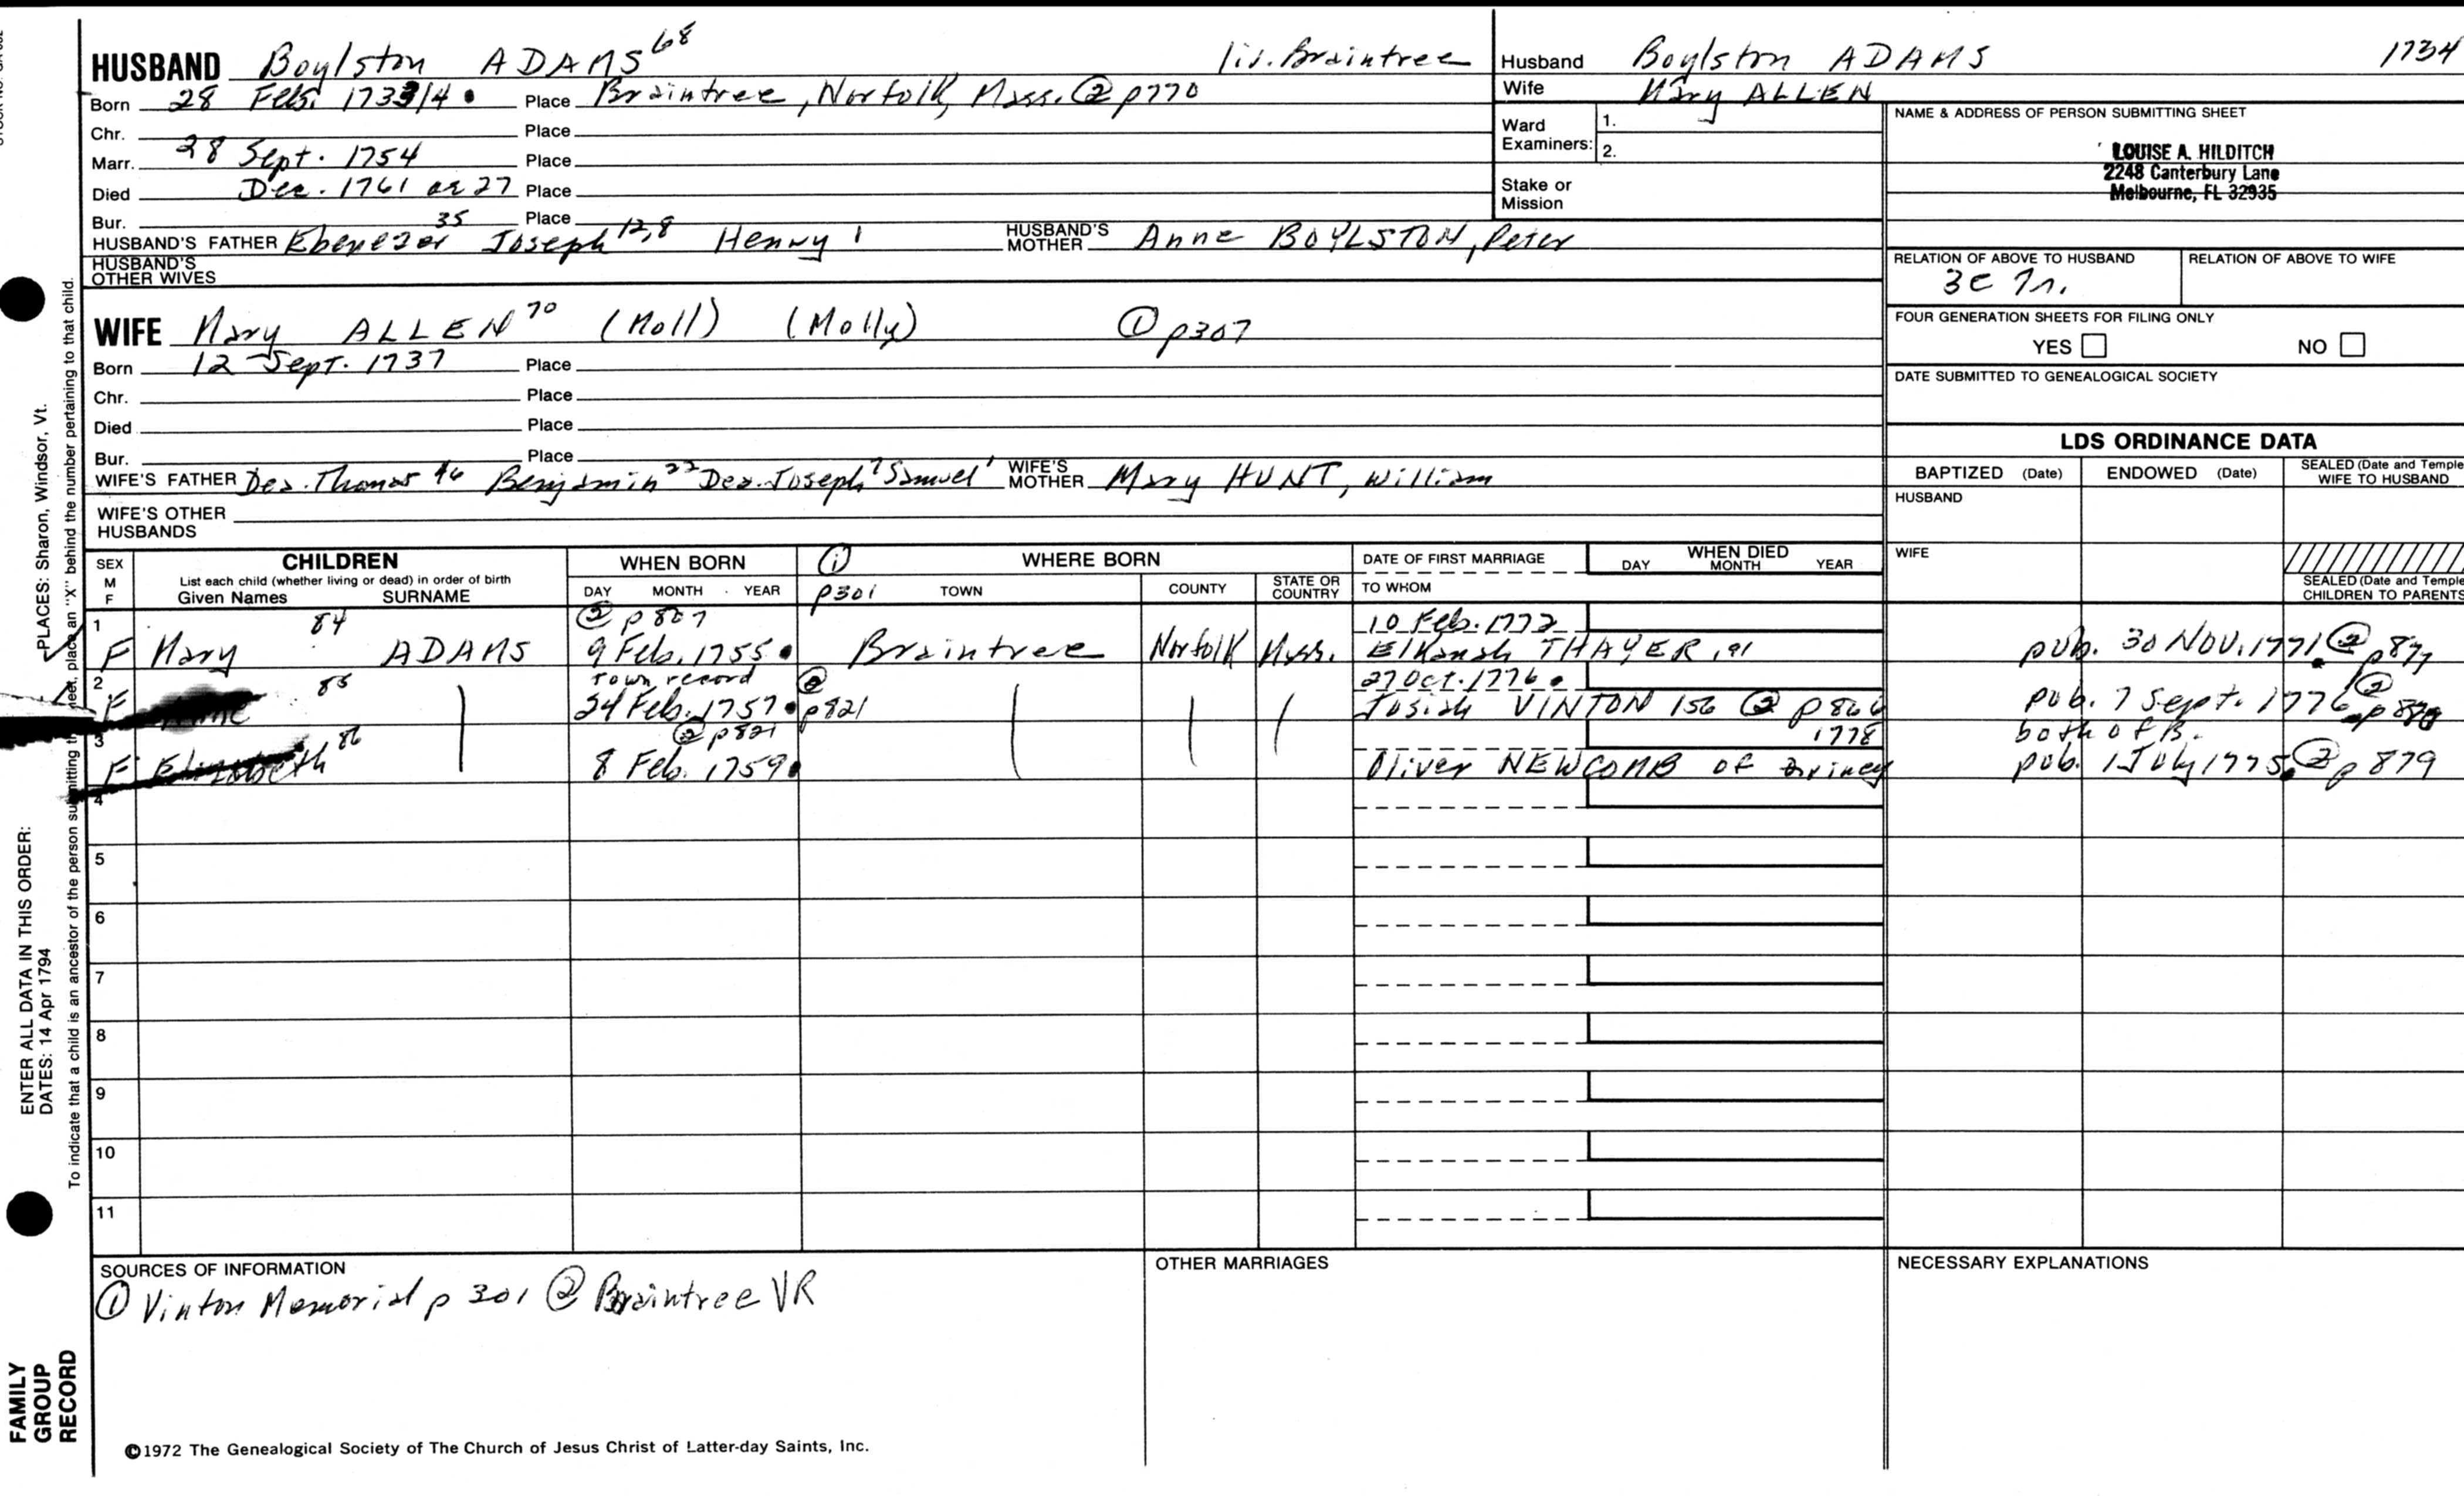 HUSBAND Boylston ADAMS 68 liv. Braintree
Born 28 Feb. 1733/4 Place Braintree, Norfolk, Mass. ② p770
Chr. Place
Marr. 28 Sept. 1754 Place
Died Dec. 1761 ae 27 Place
Bur. Place
HUSBAND'S FATHER Ebenezer 35 Joseph 12,8 Henry 1 HUSBAND'S MOTHER Anne BOYLSTON, Peter
HUSBAND'S OTHER WIVES
WIFE Mary ALLEN 70 (Moll) (Molly) ① p307
Born 12 Sept. 1737 Place
Chr. Place
Died Place
Bur. Place
WIFE'S FATHER Dea. Thomas 46 Benjamin 22 Dea. Joseph 7 Samuel 1 WIFE'S MOTHER Mary HUNT, William
WIFE'S OTHER HUSBANDS
Husband Boylston ADAMS 1734
Wife Mary ALLEN
Ward Examiners: 1.
2.
Stake or Mission
NAME & ADDRESS OF PERSON SUBMITTING SHEET
LOUISE A. HILDITCH
2248 Canterbury Lane
Melbourne, FL 32935
RELATION OF ABOVE TO HUSBAND RELATION OF ABOVE TO WIFE
3c 7r.
FOUR GENERATION SHEETS FOR FILING ONLY
YES NO
DATE SUBMITTED TO GENEALOGICAL SOCIETY
LDS ORDINANCE DATA
BAPTIZED (Date) ENDOWED (Date) SEALED (Date and Temple WIFE TO HUSBAND
HUSBAND
WIFE
SEALED (Date and Temple
CHILDREN TO PARENTS
SEX M F CHILDREN WHEN BORN ① WHERE BORN DATE OF FIRST MARRIAGE WHEN DIED
List each child (whether living or dead) in order of birth
Given Names SURNAME DAY MONTH YEAR p301 TOWN COUNTY STATE OR COUNTRY TO WHOM DAY MONTH YEAR
1 84 ② p807 10 Feb. 1772
F Mary ADAMS 9 Feb. 1755 Braintree Norfolk Mass. Elkanah THAYER, 91 pub. 30 NOV. 1771 ② p877
2 85 Town record ② 27 Oct. 1776
F 24 Feb. 1757 p821 Josiah VINTON 156 ② p866 pub. 7 Sept. 1776 ②
both of B.
3 86 ② p821 1778
F Elizabeth 8 Feb. 1759 Oliver NEWCOMB of pub. 1 July 1775 ② p879
4
5
6
7
8
9
10
11
SOURCES OF INFORMATION
① Vinton Memorial p 301 ② Braintree VR
OTHER MARRIAGES
NECESSARY EXPLANATIONS
©1972 The Genealogical Society of The Church of Jesus Christ of Latter-day Saints, Inc.
ENTER ALL DATA IN THIS ORDER:
PLACES: Sharon, Windsor, Vt.
DATES: 14 Apr 1794
To indicate that a child is an ancestor of the person submitting the sheet, place an "X" behind the number pertaining to that child.
FAMILY
GROUP
RECORD